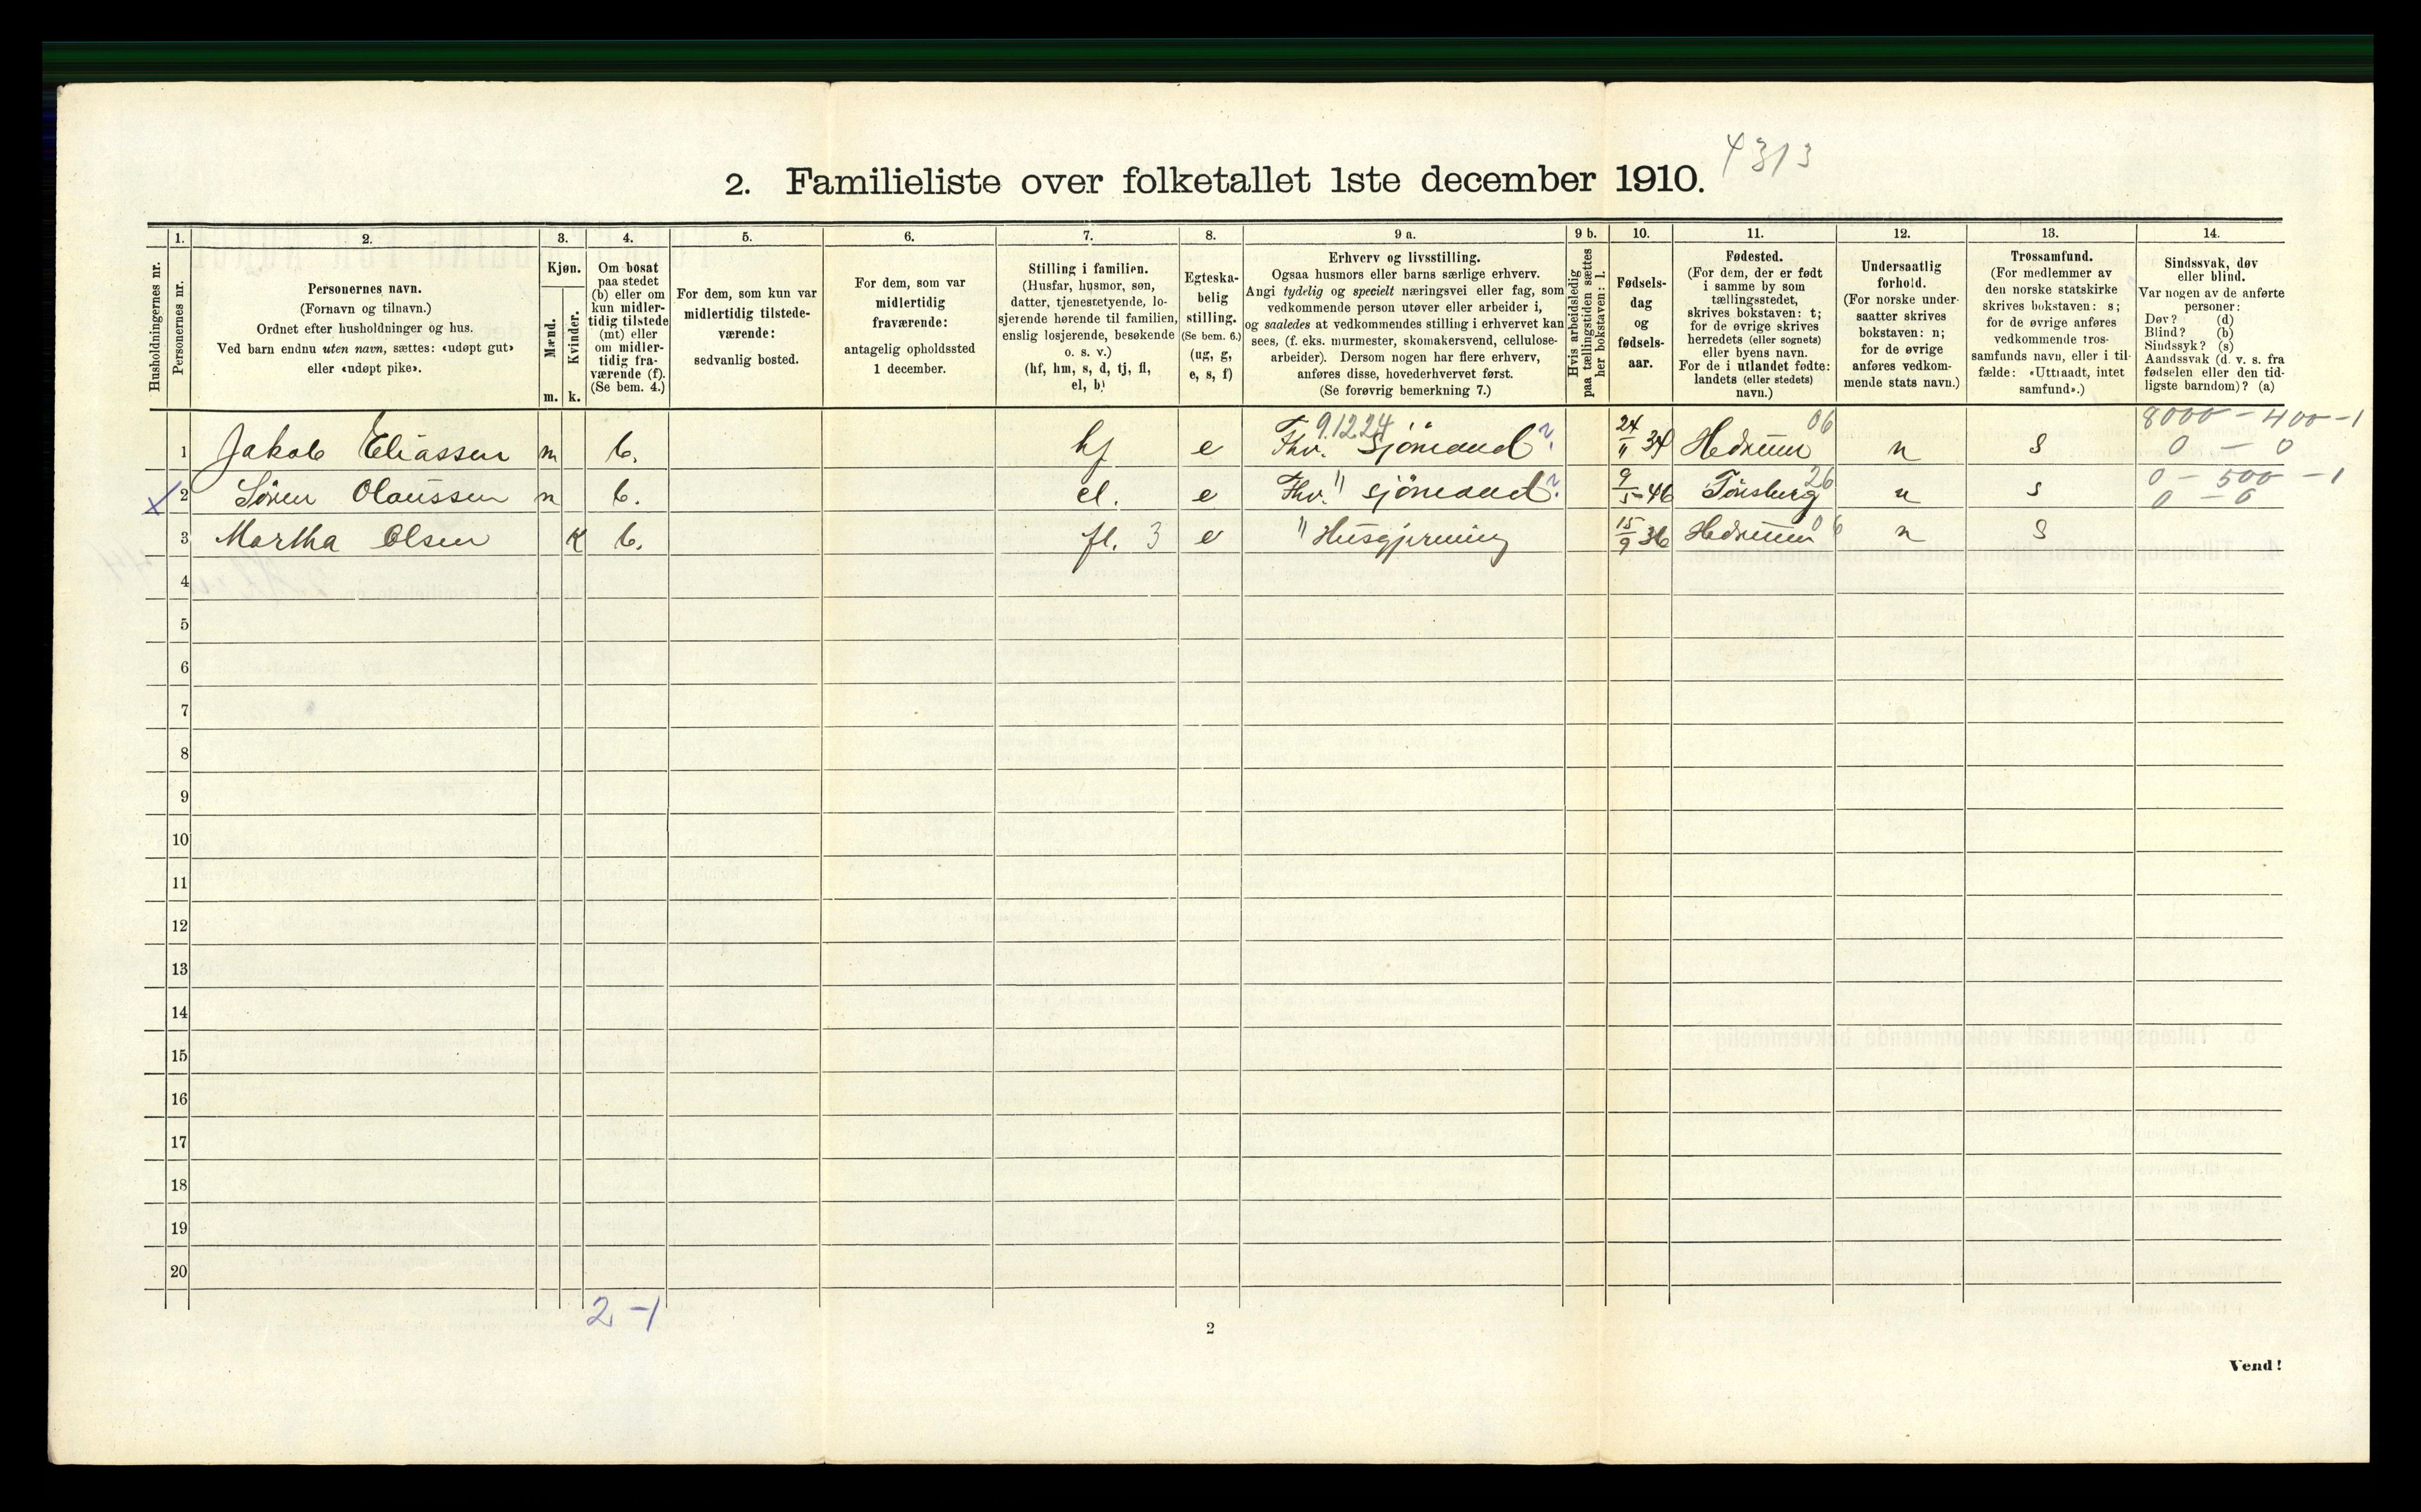 4313
2. Familieliste over folketallet 1ste december 1910.
Husholdningernes nr.
1.
Personernes nr.
2.
Personernes navn.
(Fornavn og tilnavn.)
Ordnet efter husholdninger og hus.
Ved barn endnu uten navn, sættes: «udøpt gut»
eller «udøpt pike».
3.
Kjøn.
Mænd.
Kvinder.
m. k.
4.
Om bosat
paa stedet
(b) eller om
kun midler-
tidig tilstede
(mt) eller
om midler-
tidig fra-
værende (f).
(Se bem. 4.)
5.
For dem, som kun var
midlertidig tilstede-
værende:
sedvanlig bosted.
6.
For dem, som var
midlertidig
fraværende:
antagelig opholdssted
1 december.
7.
Stilling i familien.
(Husfar, husmor, søn,
datter, tjenestetyende, lo-
sjerende hørende til familien,
enslig losjerende, besøkende
o. s. v.)
(hf, hm, s, d, tj, fl,
el, b)
8.
Egteska-
belig
stilling.
(Se bem. 6.)
(ug, g,
e, s, f)
9 a.
Erhverv og livsstilling.
Ogsaa husmors eller barns særlige erhverv.
Angi tydelig og specielt næringsvei eller fag, som
vedkommende person utøver eller arbeider i,
og saaledes at vedkommendes stilling i erhvervet kan
sees, (f. eks. murmester, skomakersvend, cellulose-
arbeider). Dersom nogen har flere erhverv,
anføres disse, hovederhvervet først.
(Se forøvrig bemerkning 7.)
9 b.
Hvis arbeidsledig
paa tællingstiden sættes
her bokstaven: l.
10.
Fødsels-
dag
og
fødsels-
aar.
11.
Fødested.
(For dem, der er født
i samme by som
tællingsstedet,
skrives bokstaven: t;
for de øvrige skrives
herredets (eller sognets)
eller byens navn.
For de i utlandet fødte:
landets (eller stedets)
navn.)
12.
Undersaatlig
forhold.
(For norske under-
saatter skrives
bokstaven: n;
for de øvrige
anføres vedkom-
mende stats navn.)
13.
Trossamfund.
(For medlemmer av
den norske statskirke
skrives bokstaven: s;
for de øvrige anføres
vedkommende tros-
samfunds navn, eller i til-
fælde: «Uttraadt, intet
samfund».)
14.
Sindssvak, døv
eller blind.
Var nogen av de anførte
personer:
Døv? (d)
Blind? (b)
Sindssyk? (s)
Aandssvak (d. v. s. fra
fødselen eller den tid-
ligste barndom)? (a)
9.12.24 06 8000 - 400 - 1
1 Jakob Eliassen m b. hf e Fhv. Sjömand ? 24/11 34 Hedrum n s 0 - 0
26 0 - 500 - 1
2 Sören Olaussen m b. el. e Fhv. " sjömand ? 9/5 46 Tönsberg n s 0 - 0
3 Martha Olsen K b. fl. 3 e " Husgjerning 15/9 36 Hedrum 06 n s
4
5
6
7
8
9
10
11
12
13
14
15
16
17
18
19
20
2 - 1
2
Vend!